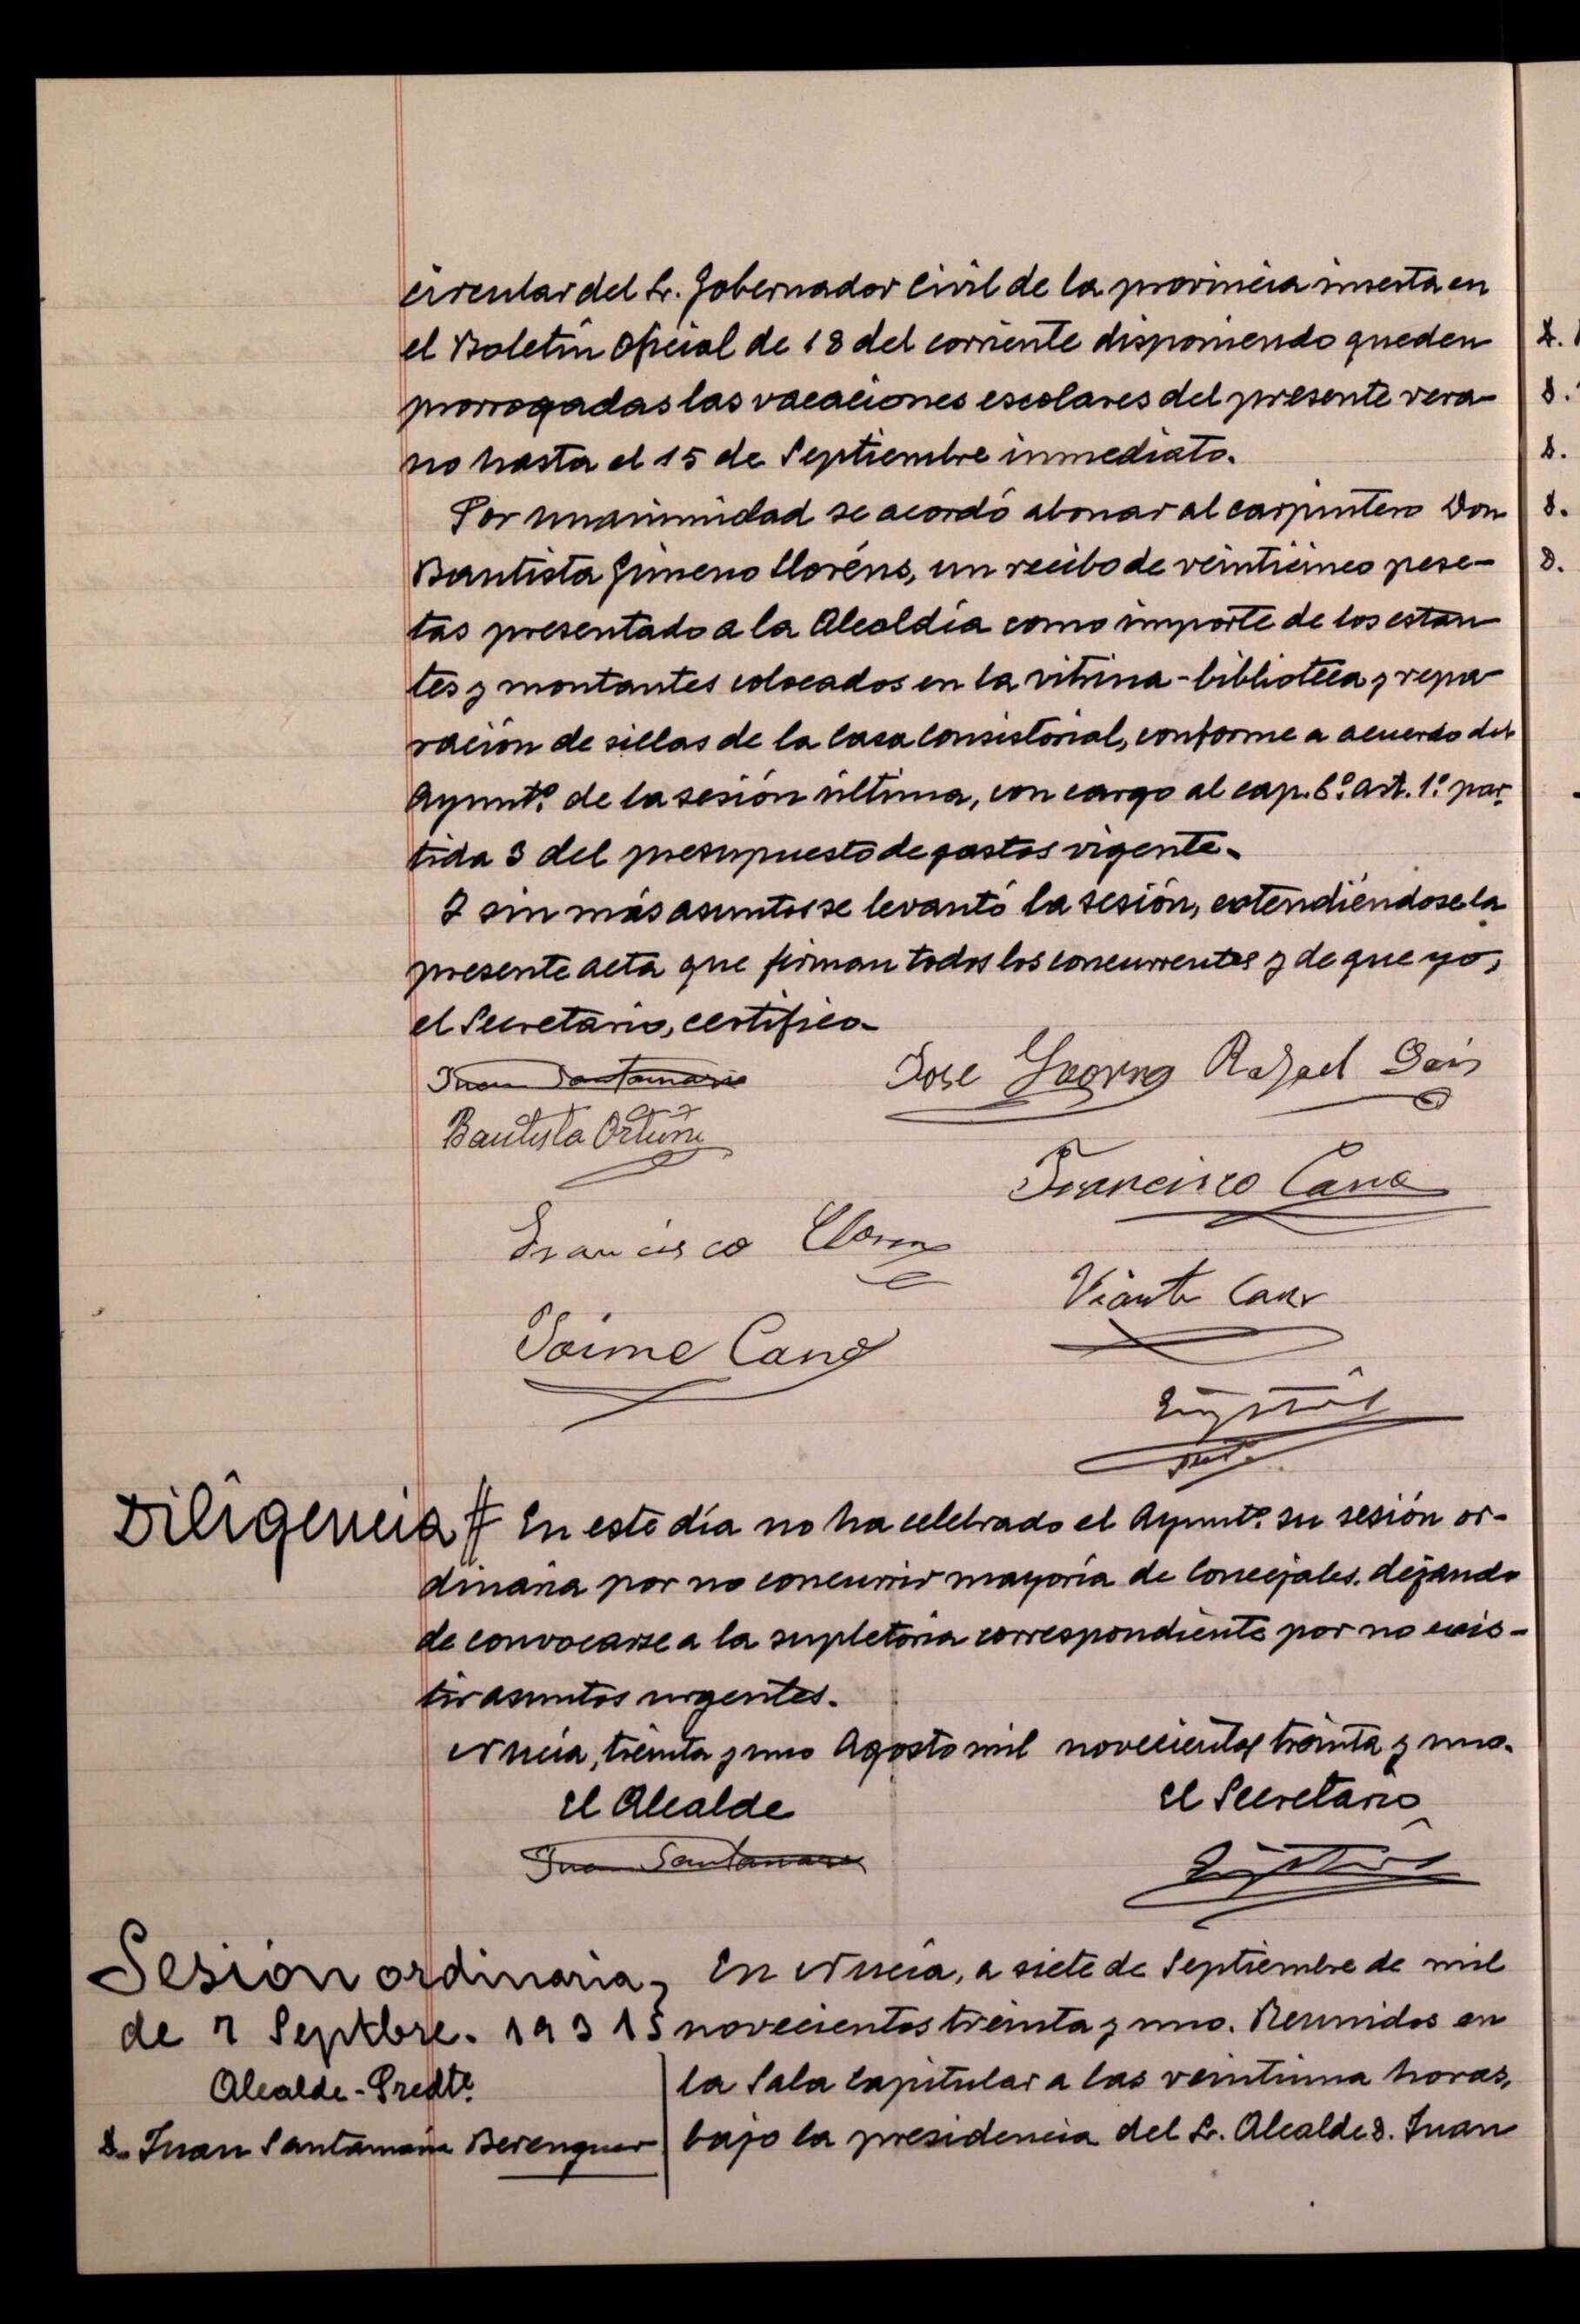 circular del Sr. Gobernador Civil de la provincia inserta en
el Boletín Oficial de 18 del corriente disponiendo queden
prorrogadas las vacaciones escolares del presente vera-
no hasta el 15 de Septiembre inmediato.
Por unanimidad se acordó abonar al carpintero Don
Bautista Gimeno Lloréns, un recibo de veinticinco pese-
tas presentado a la Alcaldía como importe de los estan-
tes y montantes colocados en la vitrina-biblioteca y repa-
ración de sillas de la Casa Consistorial, conforme a acuerdo del
Ayuntº. de la sesión última, con cargo al cap. 6º. art. 1º. par-
tida 3 del presupuesto de gastos vigente.
Y sin más asuntos se levantó la sesión, extendiéndose la
presente acta que firman todos los concurrentes y de que yo,
el Secretario, certifico.
Juan Santamaria
Jose Rafael
Bautista Ortuño
Francisco Cano
Francisco Llorens
Vicente Cano
Jaime Cano
Diligencia # En este día no ha celebrado el Ayuntº. su sesión or-
dinaria por no concurrir mayoría de Concejales, dejando
de convocarse a la supletoria correspondiente por no exis-
tir asuntos urgentes.
Nucía, treinta y uno Agosto mil novecientos treinta y uno.
El Alcalde El Secretario
Juan Santamaria
Sesión ordinaria En Nucía, a siete de Septiembre de mil
de 7 Septbre. 1931 novecientos treinta y uno. Reunidos en
Alcalde-Predtº. la Sala Capitular a las veintiuna horas,
D. Juan Santamaría Berenguer bajo la presidencia del Sr. Alcalde D. Juan